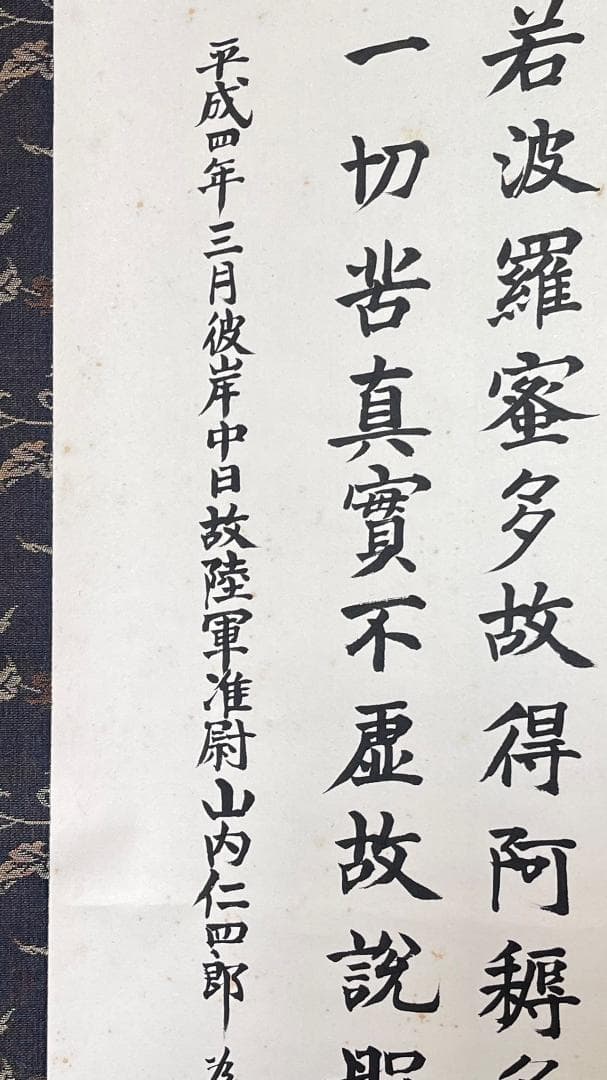 若波羅蜜多故得阿耨多
一切苦真實不虛故説般
平成四年三月彼岸中日故陸軍准尉山内仁四郎為